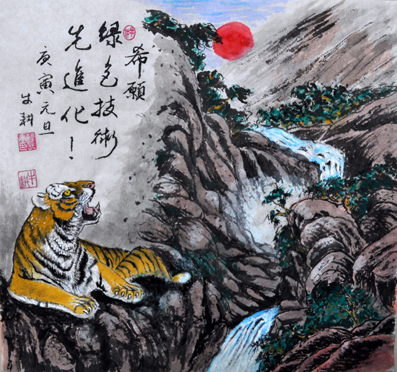 希願
綠色技術
先進化！
庚寅元旦
耕